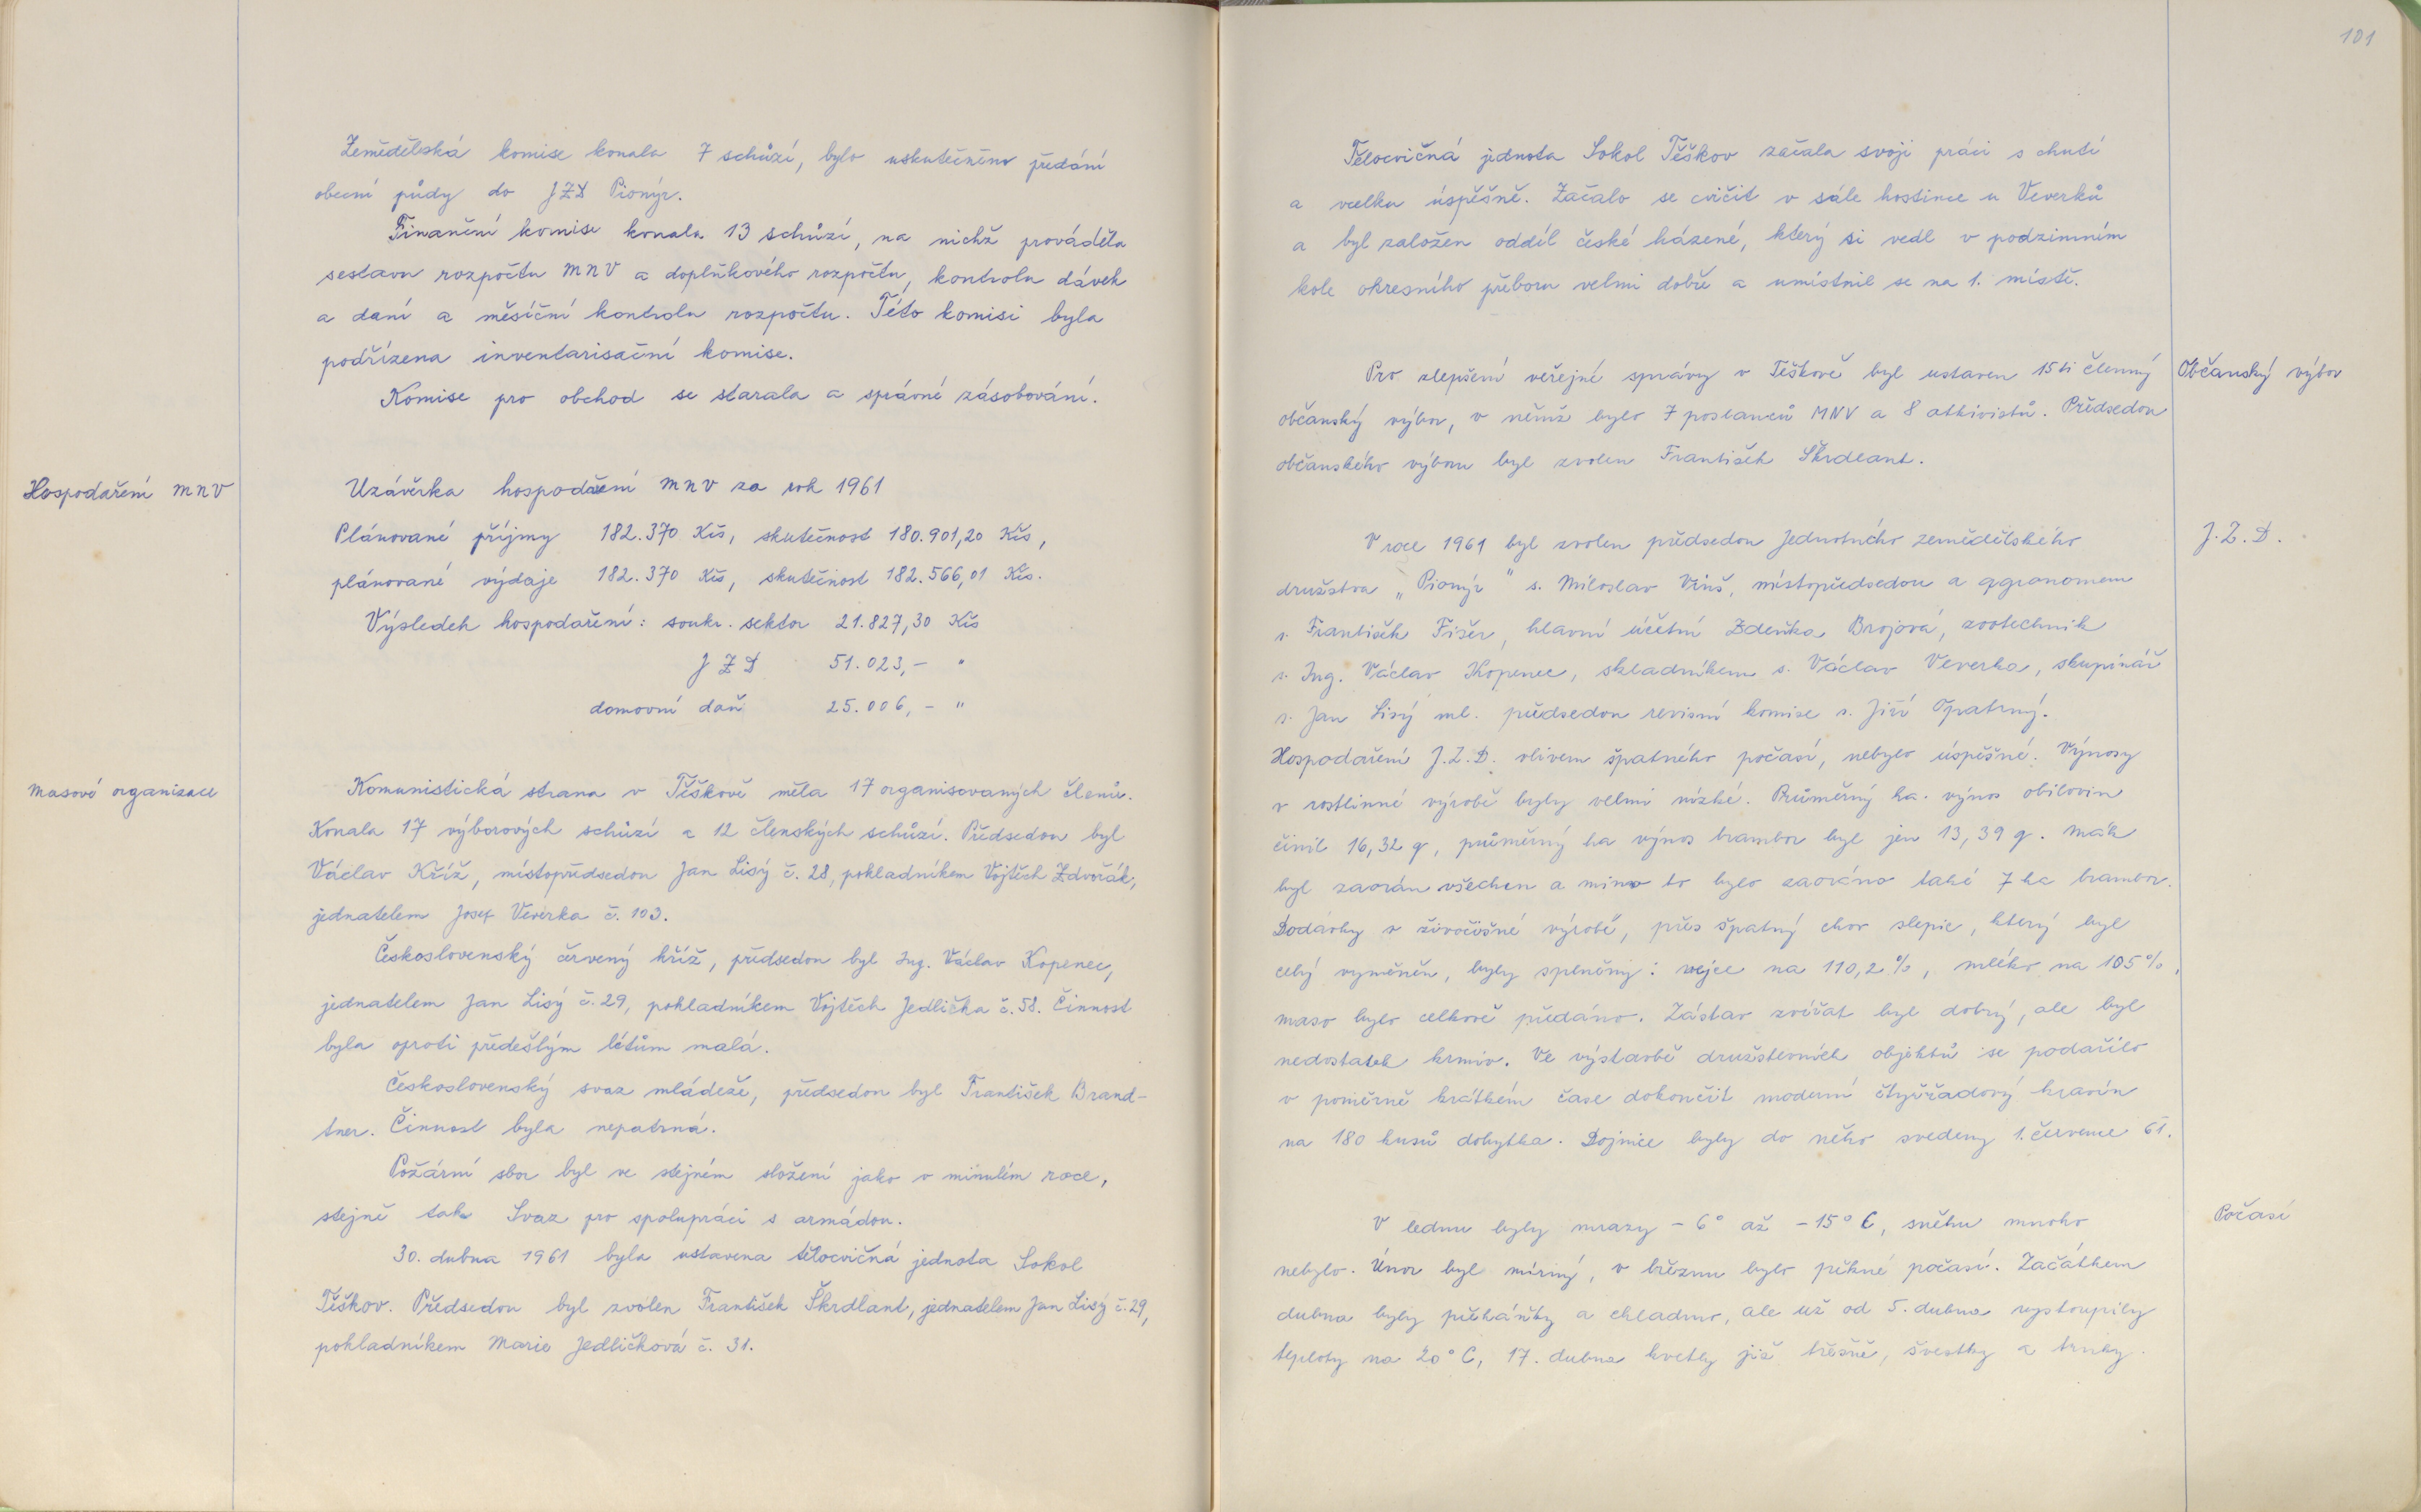 Zemědělská komise konala 7 schůzí, bylo uskutečněno předání
obecní půdy do JZD Pionýr.
Finanční komise konala 13 schůzí, na nichž prováděla
sestavu rozpočtu MNV a doplňkového rozpočtu, kontrolu dávek
a daní a měsíční kontrolu rozpočtu. Této komisi byla
podřízena inventarisační komise.
Komise pro obchod se starala a správné zásobování.
Hospodaření MNV
Uzávěrka hospodaření MNV za rok 1961
Plánované příjmy 182.370 Kčs, skutečnost 180.901,20 Kčs,
plánované výdaje 182.370 Kčs, skutečnost 182.566,01 Kčs.
Výsledek hospodaření: soukr. sektor 21.827,30 Kčs
JZD 51.023,- "
domovní daň 25.006,- "
Masové organizace
Komunistická strana v Těškově měla 17 organisovaných členů.
Konala 17 výborových schůzí a 12 členských schůzí. Předsedou byl
Václav Kříž, místopředsedou Jan Lisý č. 28, pokladníkem Vojtěch Zdvořák,
jednatelem Josef Veverka č. 103.
Československý červený kříž, předsedou byl Ing. Václav Kopenec,
jednatelem Jan Lisý č. 29, pokladníkem Vojtěch Jedlička č. 58. Činnost
byla oproti předešlým létům malá.
Československý svaz mládeže, předsedou byl František Brand-
tner. Činnost byla nepatrná.
Požární sbor byl ve stejném složení jako v minulém roce,
stejně tak Svaz pro spolupráci s armádou.
30. dubna 1961 byla ustavena tělocvičná jednota Sokol
Těškov. Předsedou byl zvolen František Škrdlant, jednatelem Jan Lisý č. 29,
pokladníkem Marie Jedličková č. 31.
101
Tělocvičná jednota Sokol Těškov začala svoji práci s chutí
a vcelku úspěšně. Začalo se cvičit v sále hostince u Veverků
a byl založen oddíl české házené, který si vedl v podzimním
kole okresního přeboru velmi dobře a umístnil se na 1. místě.
Občanský výbor
Pro zlepšení veřejné správy v Těškově byl ustaven 15ti členný
občanský výbor, v němž bylo 7 poslanců MNV a 8 aktivistů. Předsedou
občanského výboru byl zvolen František Škrdlant.
J. Z. D.
V roce 1961 byl zvolen předsedou Jednotného zemědělského
družstva „Pionýr" s. Miloslav Vůš, místopředsedou a agronomem
s. František Fišer, hlavní účetní Zdeňka Brojová, zootechnik
s. Ing. Václav Kopenec, skladníkem s. Václav Veverka, skupinář
s. Jan Lisý ml. předsedou revisní komise s. Jiří Opatrný.
Hospodaření J.Z.D. vlivem špatného počasí, nebylo úspěšné. Výnosy
v rostlinné výrobě byly velmi nízké. Průměrný ha. výnos obilovin
činil 16,32 q, průměrný ha výnos brambor byl jen 13,39 q. Mák
byl zaorán všechen a mimo to bylo zaoráno také 7 ha brambor.
Dodávky v živočišné výrobě, přes špatný chov slepic, který byl
celý vyměněn, byly splněny: vejce na 110,2 %, mléko na 105 %,
maso bylo celkově předáno. Zástav zvířat byl dobrý, ale byl
nedostatek krmiv. Ve výstavbě družstevních objektů se podařilo
v poměrně krátkém čase dokončit moderní čtyřřadový kravín
na 180 kusů dobytka. Dojnice byly do něho svedeny 1. července 61.
Počasí
V lednu byly mrazy - 6° až - 15° C, sněhu mnoho
nebylo. Únor byl mírný, v březnu bylo pěkné počasí. Začátkem
dubna byly přeháňky a chladno, ale už od 5. dubna vystoupily
teploty na 20° C, 17. dubna kvetly již třešně, švestky a trnky.